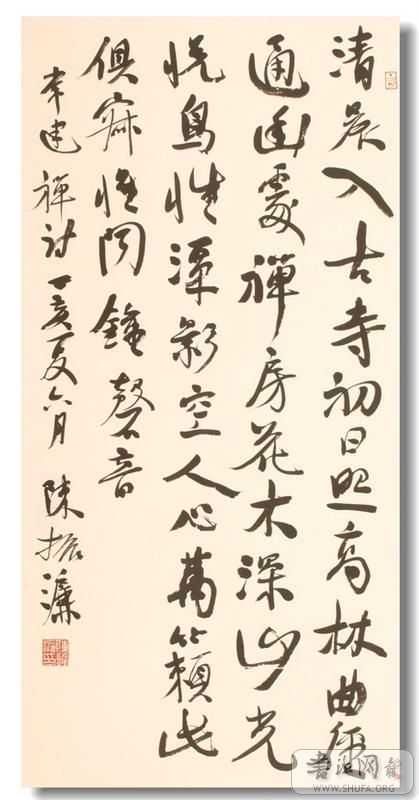 清晨入古寺初日照高林曲徑
通幽處禪房花木深山光
悅鳥性潭影空人心萬籟此
俱寂惟聞鐘磬音
常建禪詩丁亥夏六月陳振濂
书法网
WWW.SHUFA.ORG